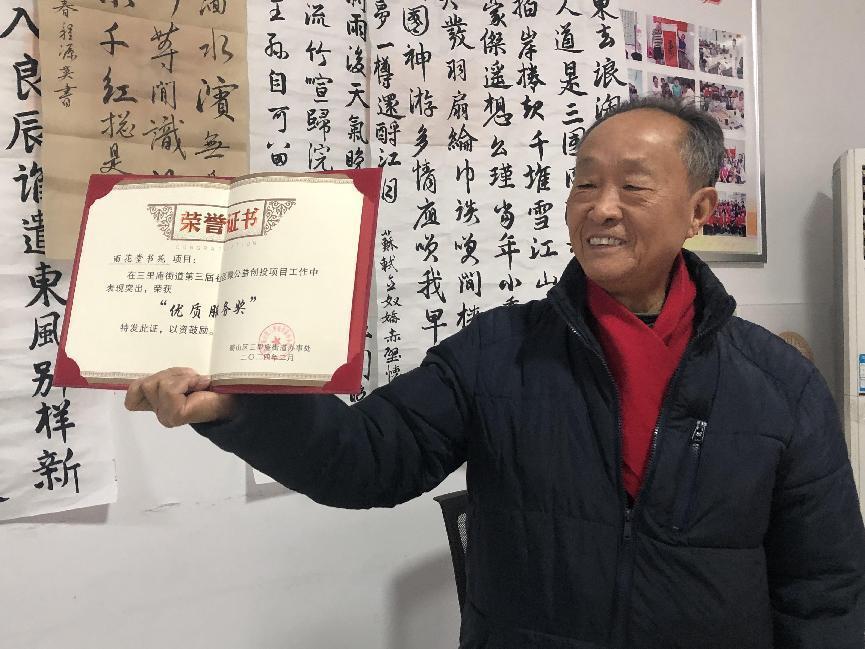 荣誉证书
花堂书苑 项目：
在三里庵街道第三届 微公益创投项目工作中
表现突出，荣获
“优质服务奖”
特发此证，以资鼓励。
蜀山区三里庵街道办事处
二〇二四年二月
東去浪淘
人道是三國
拍岸捲起千堆雪江山
傑遥想公瑾當年小喬
發羽扇綸巾談笑間檣
國神游多情應笑我早
夢一樽還酹江月
蘇軾念奴嬌赤壁懷
雨後天氣晚
流竹喧歸浣
王孫自可留
水濱無
等閒識
千紅總是
春程源英書
入良辰誰遣東風别樣新